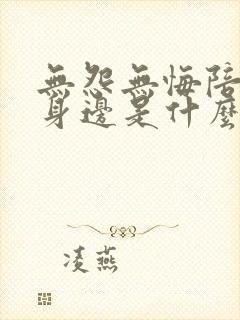 無怨無悔陪
身邊是什麼
凌燕